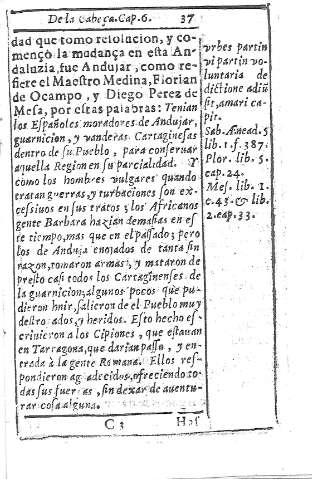 De la Cabeça. Cap. 6. 37
dad que tomo resolucion, y co-
mençò la mudança en esta An-
daluzia, fue Andujar, como re-
fiere el Maestro Medina, Florian
de Ocampo, y Diego Perez de
Mesa, por estas palabras: Tenian
los Españoles moradores de Andujar,
guarnicion, y vanderas Cartaginesas
dentro de su Pueblo, para conseruar
aquella Region en su parcialidad. Y
como los hombres vulgares quando
tratan guerras, y turbaciones son ex-
cessiuos en sus tratos; los Africanos
gente Barbara hazian demasias en es
te tiempo, mas que en el passado; pero
los de Andujar enojados de tanta sin
razon, tomaron armas, y mataron de
presto casi todos los Cartaginenses de
la guarnicion; algunos pocos que pu-
dieron huir, salieron de el Pueblo muy
destroçados, y heridos. Esto hecho es-
criuieron a los Cipiones, que estauan
en Tarragona, que darian passo, y en-
trada à la gente Romana. Ellos res-
pondieron agradecidos, ofreciendo to-
das sus fuerças, sin dexar de auentu-
rar cosa alguna.
C 3 Has
vrbes partim
vi partim vo
luntaria de
dictione
capi-
Sab. Ænead. 5
lib. 1. f. 387.
Flor. lib. 5.
cap. 24.
Mes. lib. 1.
c. 43. & lib.
2. cap. 33.